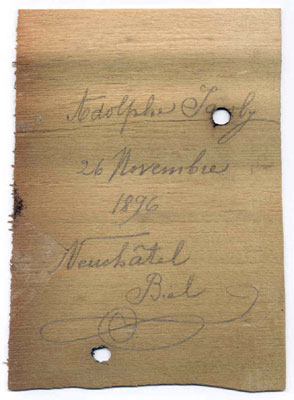 Adolphe Jacoby
26 Novembre
1896
Neuchâtel
Bel